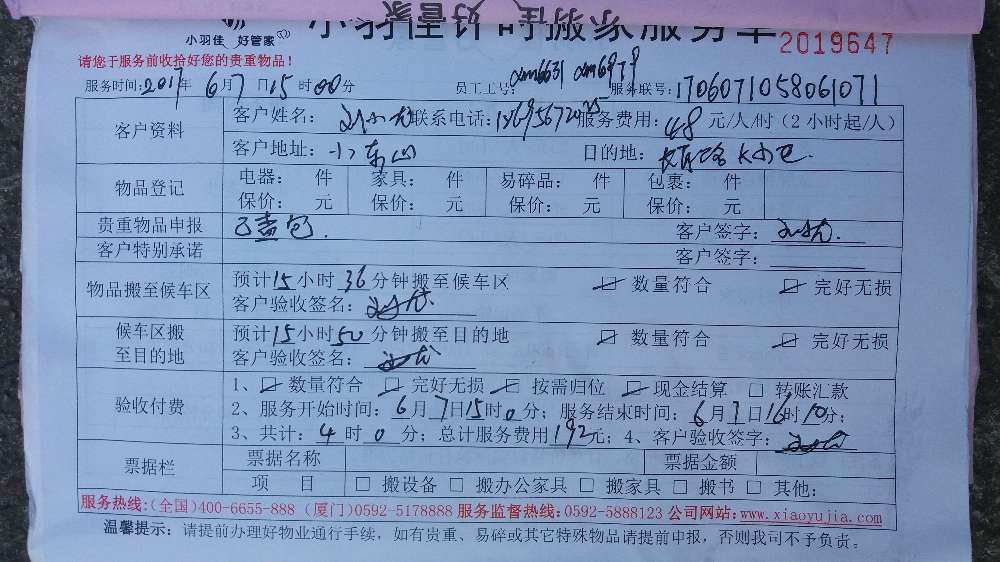 小羽佳 好管家
小羽佳 好管家
小羽佳计时搬家服务单
2019647
请您于服务前收拾好您的贵重物品！
服务时间：2017年 6月7日15时00分 员工工号：xm6631 xm6979 服务联号：1706071058061071
客户资料
客户姓名： 联系电话： 服务费用：48元/人/时（2小时起/人）
客户地址：小东山 目的地：
物品登记
电器： 件 家具： 件 易碎品： 件 包裹： 件
保价： 元 保价： 元 保价： 元 保价： 元
贵重物品申报 客户签字：
客户特别承诺 客户签字：
物品搬至候车区
预计15小时36分钟搬至候车区 ☑ 数量符合 ☑ 完好无损
客户验收签名：
候车区搬
至目的地
预计15小时50分钟搬至目的地 ☑ 数量符合 ☑ 完好无损
客户验收签名：
验收付费
1、☑ 数量符合 ☑ 完好无损 ☑ 按需归位 ☑ 现金结算 □ 转账汇款
2、服务开始时间：6月7日15时0分；服务结束时间：6月7日16时10分；
3、共计：4时0分；总计服务费用192元；4、客户验收签字：
票据栏
票据名称 票据金额
项 目 □ 搬设备 □ 搬办公家具 □ 搬家具 □ 搬书 □ 其他:
服务热线:(全国)400-6655-888 (厦门)0592-5178888 服务监督热线:0592-5888123 公司网站:www.xiaoyujia.com
温馨提示：请提前办理好物业通行手续，如有贵重、易碎或其它特殊物品请提前申报，否则我司不予负责。